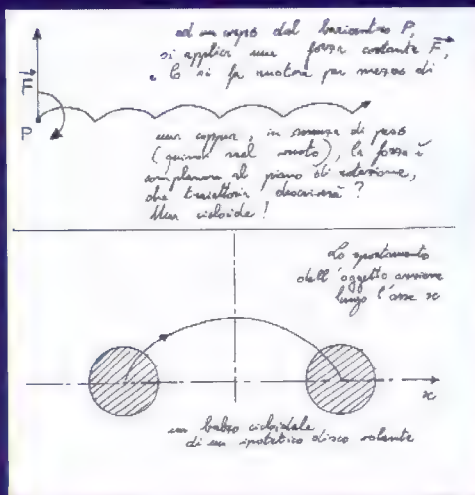 ad un corpo dal baricentro P,
si applica una forza costante F,
e lo si fa ruotare per mezzo di
F
P
una coppia, in assenza di peso
(quindi nel vuoto), la forza è
complanare al piano di rotazione,
che traiettoria descriverà?
Una cicloide!
Lo spostamento
dell'oggetto avviene
lungo l'asse x
x
un balzo cicloidale
di un ipotetico disco volante